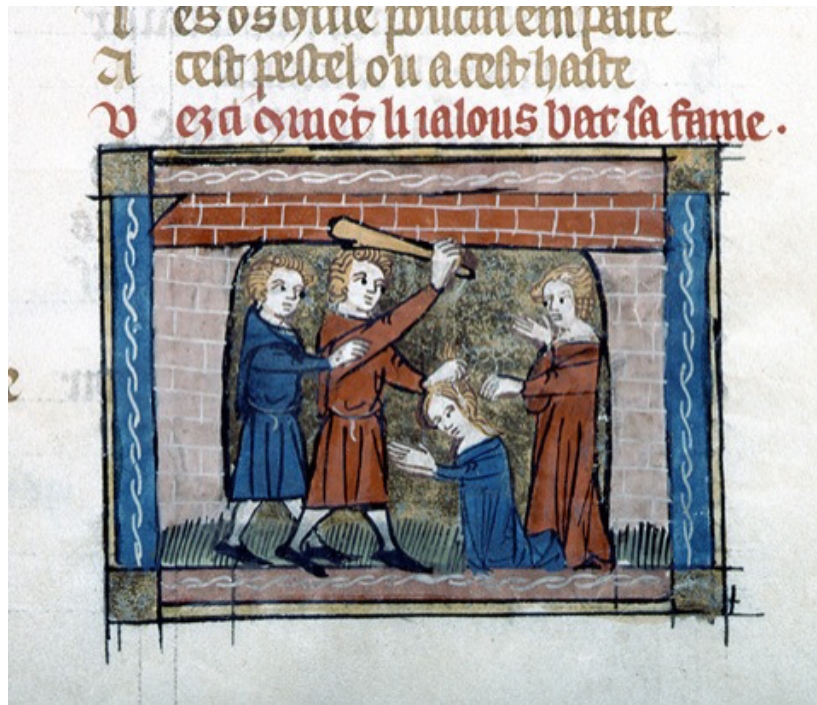 T es os ꝯme poucin empaste
A cest pestel ou a cest haste
V ez ci ꝯmēt li ialous bat sa fame .